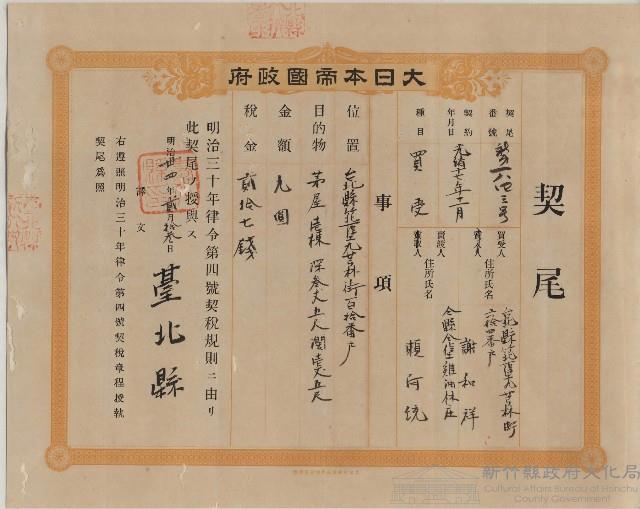 大日本帝國政府
契尾
契尾番號
第一八七三号
契約年月日
光緒十七年十二月
種目
買受
買受人
住所氏名
台北縣竹北一堡九芎林街
六拾四番戶
謝和祥
住所氏名
仝縣仝堡雞油林庄
賴阿統
事項
位置
台北縣竹北一堡九芎林街百拾番戶
目的物
茅屋壹棟 深叁丈五尺 濶壹丈五尺
金額
九圓
稅金
貳拾七錢
明治三十年律令第四號契稅規則ニ由リ
此契尾ヲ授與ス
明治卅四年貳月拾叁日
臺北縣
譯文
右遵照明治三十年律令第四號契稅章程授執
契尾爲照
新竹縣政府文化局
Cultural Affairs Bureau of Hsinchu
County Government